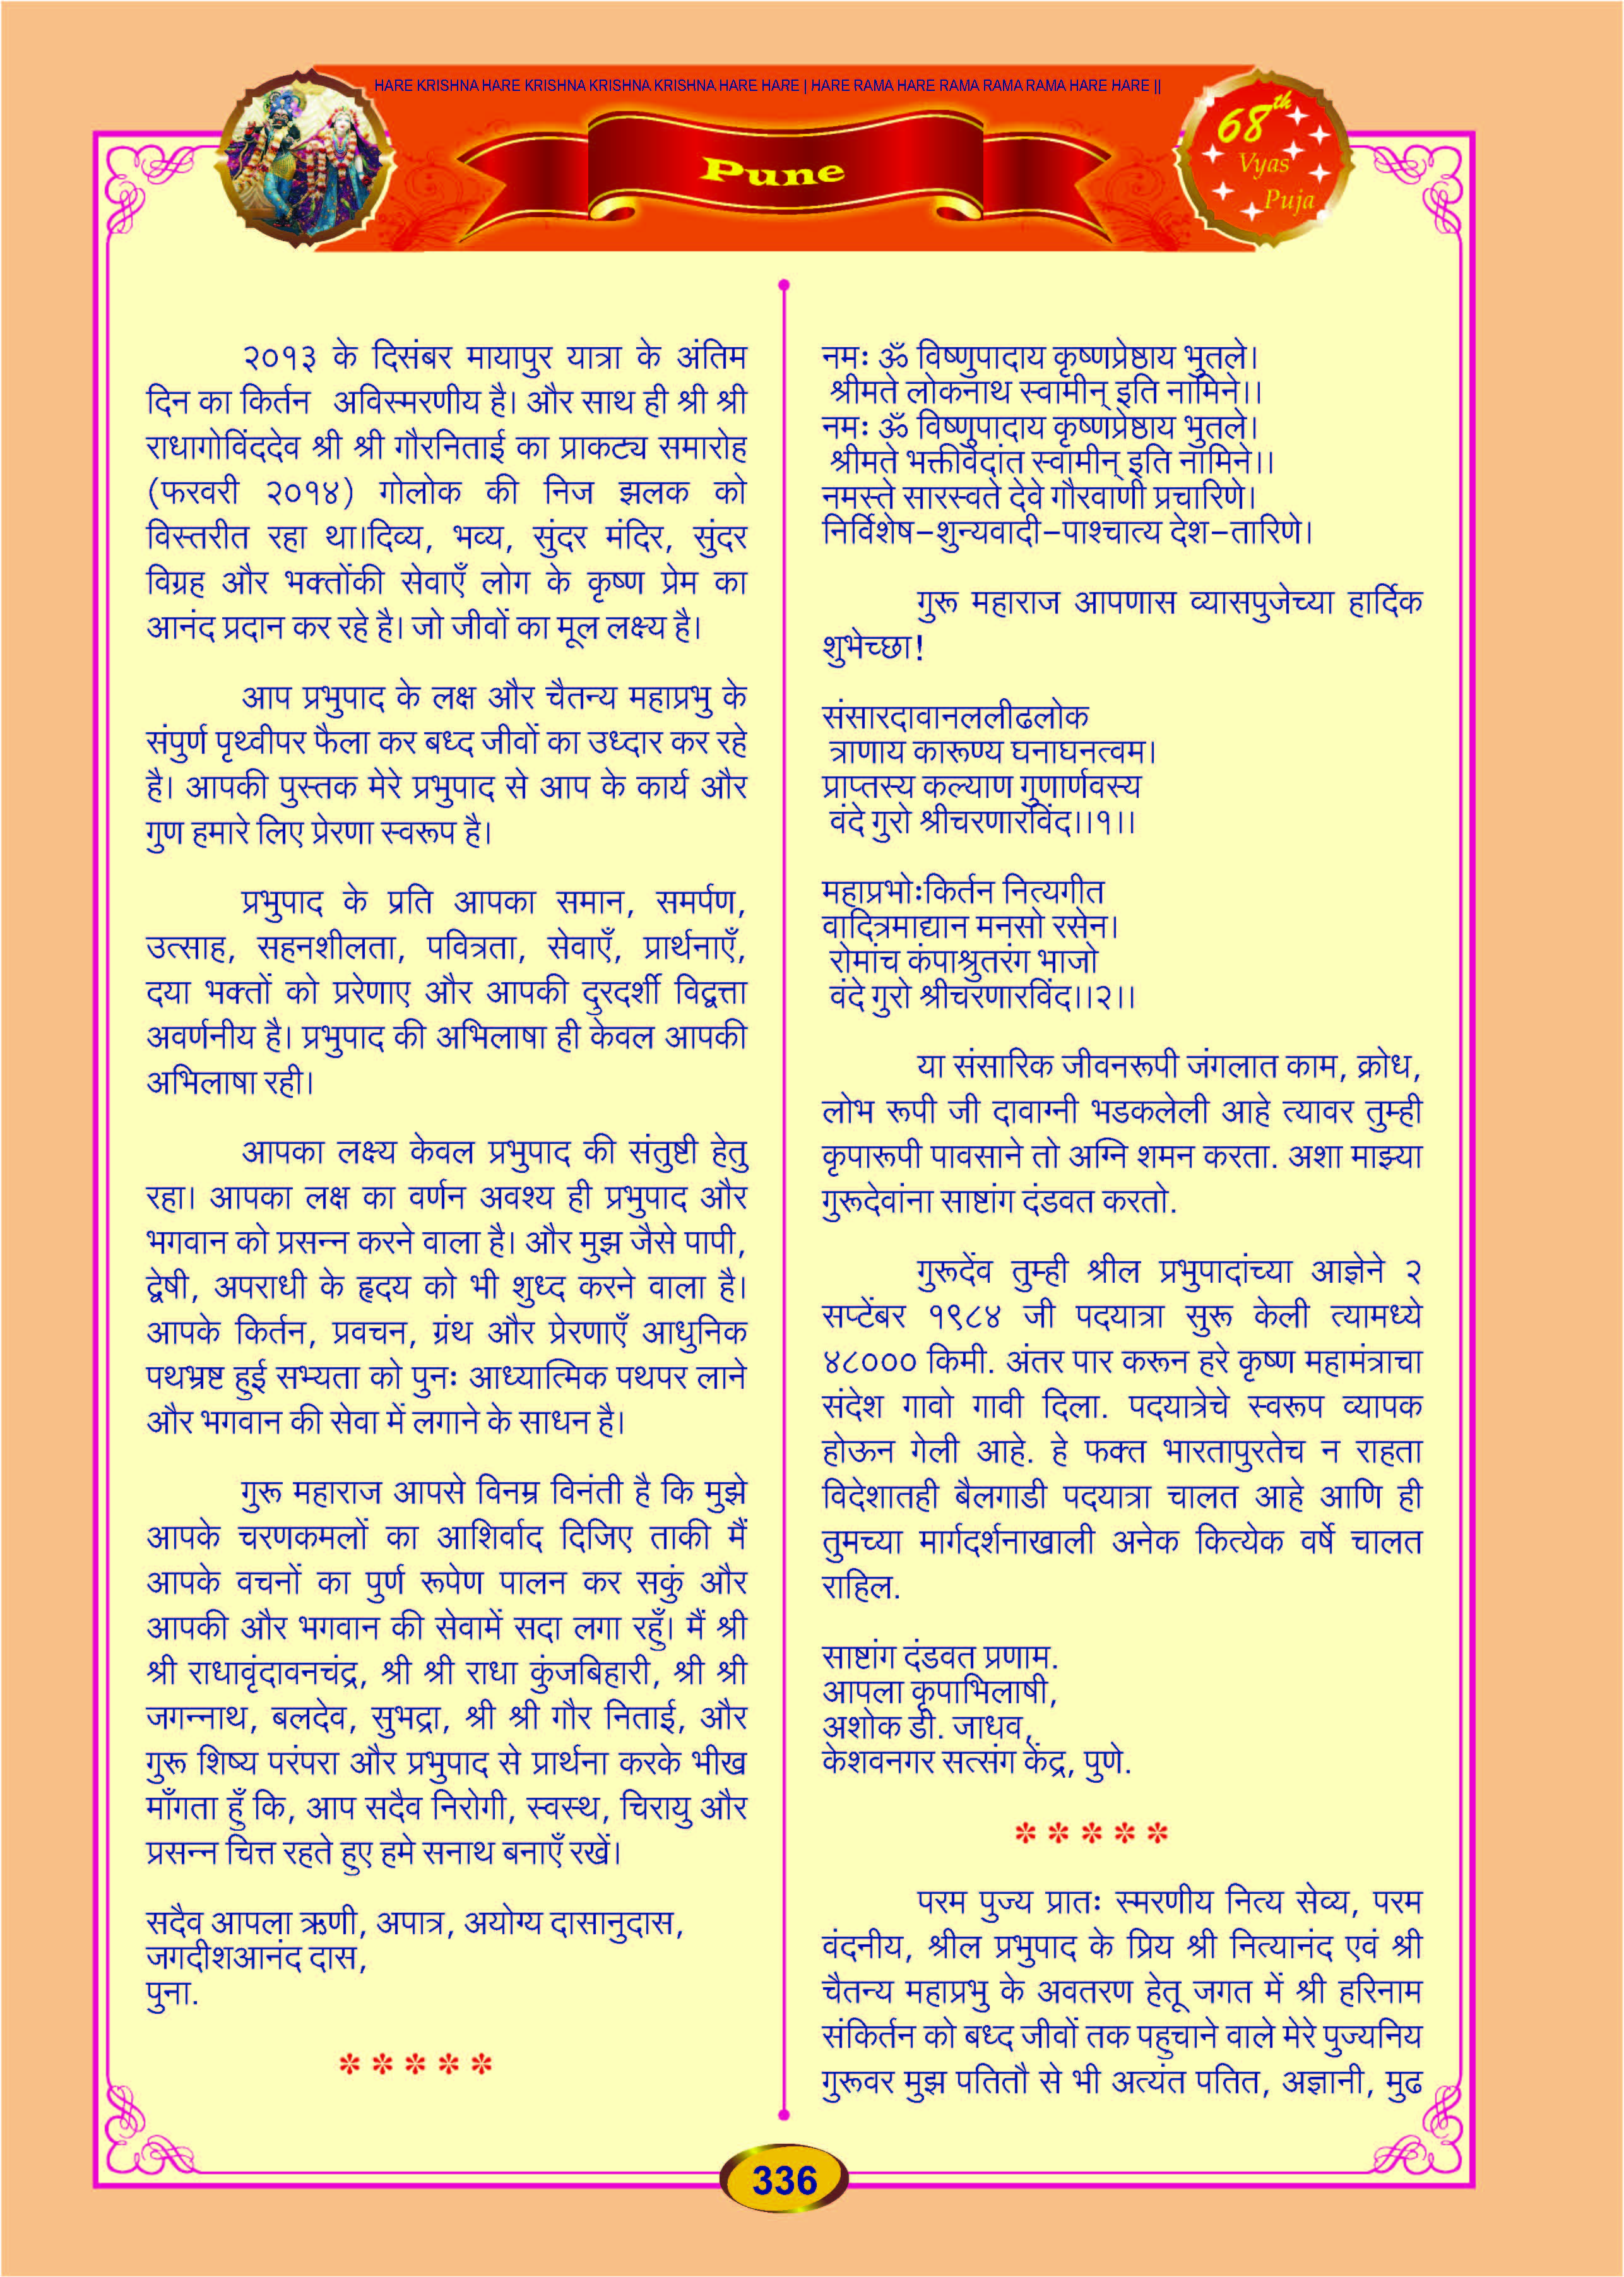 HARE KRISHNA HARE KRISHNA KRISHNA KRISHNA HARE HARE | HARE RAMA HARE RAMA RAMA RAMA HARE HARE ||
Pune
68th
Vyas
Puja
२०१३ के दिसंबर मायापुर यात्रा के अंतिम
दिन का किर्तन अविस्मरणीय है। और साथ ही श्री श्री
राधागोविंददेव श्री श्री गौरनिताई का प्राकट्य समारोह
(फरवरी २०१४) गोलोक की निज झलक को
विस्तरीत रहा था।दिव्य, भव्य, सुंदर मंदिर, सुंदर
विग्रह और भक्तोंकी सेवाएँ लोग के कृष्ण प्रेम का
आनंद प्रदान कर रहे है। जो जीवों का मूल लक्ष्य है।
आप प्रभुपाद के लक्ष और चैतन्य महाप्रभु के
संपुर्ण पृथ्वीपर फैला कर बध्द जीवों का उध्दार कर रहे
है। आपकी पुस्तक मेरे प्रभुपाद से आप के कार्य और
गुण हमारे लिए प्रेरणा स्वरूप है।
प्रभुपाद के प्रति आपका समान, समर्पण,
उत्साह, सहनशीलता, पवित्रता, सेवाएँ, प्रार्थनाएँ,
दया भक्तों को प्ररेणाए और आपकी दुरदर्शी विद्वत्ता
अवर्णनीय है। प्रभुपाद की अभिलाषा ही केवल आपकी
अभिलाषा रही।
आपका लक्ष्य केवल प्रभुपाद की संतुष्टी हेतु
रहा। आपका लक्ष का वर्णन अवश्य ही प्रभुपाद और
भगवान को प्रसन्न करने वाला है। और मुझ जैसे पापी,
द्वेषी, अपराधी के हृदय को भी शुध्द करने वाला है।
आपके किर्तन, प्रवचन, ग्रंथ और प्रेरणाएँ आधुनिक
पथभ्रष्ट हुई सभ्यता को पुनः आध्यात्मिक पथपर लाने
और भगवान की सेवा में लगाने के साधन है।
गुरू महाराज आपसे विनम्र विनंती है कि मुझे
आपके चरणकमलों का आशिर्वाद दिजिए ताकी मैं
आपके वचनों का पुर्ण रूपेण पालन कर सकुं और
आपकी और भगवान की सेवामें सदा लगा रहुँ। मैं श्री
श्री राधावृंदावनचंद्र, श्री श्री राधा कुंजबिहारी, श्री श्री
जगन्नाथ, बलदेव, सुभद्रा, श्री श्री गौर निताई, और
गुरू शिष्य परंपरा और प्रभुपाद से प्रार्थना करके भीख
माँगता हुँ कि, आप सदैव निरोगी, स्वस्थ, चिरायु और
प्रसन्न चित्त रहते हुए हमे सनाथ बनाएँ रखें।
सदैव आपला ऋणी, अपात्र, अयोग्य दासानुदास,
जगदीशआनंद दास,
पुना.
* * * * *
नमः ॐ विष्णुपादाय कृष्णप्रेष्ठाय भुतले।
श्रीमते लोकनाथ स्वामीन् इति नामिने।।
नमः ॐ विष्णुपादाय कृष्णप्रेष्ठाय भुतले।
श्रीमते भक्तीवेदांत स्वामीन् इति नामिने।।
नमस्ते सारस्वते देवे गौरवाणी प्रचारिणे।
निर्विशेष-शुन्यवादी-पाश्चात्य देश-तारिणे।
गुरू महाराज आपणास व्यासपुजेच्या हार्दिक
शुभेच्छा!
संसारदावानललीढलोक
त्राणाय कारूण्य घनाघनत्वम।
प्राप्तस्य कल्याण गुणार्णवस्य
वंदे गुरो श्रीचरणारविंद।।१।।
महाप्रभोःकिर्तन नित्यगीत
वादित्रमाद्यान मनसो रसेन।
रोमांच कंपाश्रुतरंग भाजो
वंदे गुरो श्रीचरणारविंद।।२।।
या संसारिक जीवनरूपी जंगलात काम, क्रोध,
लोभ रूपी जी दावाग्नी भडकलेली आहे त्यावर तुम्ही
कृपारूपी पावसाने तो अग्नि शमन करता. अशा माझ्या
गुरूदेवांना साष्टांग दंडवत करतो.
गुरूदेंव तुम्ही श्रील प्रभुपादांच्या आज्ञेने २
सप्टेंबर १९८४ जी पदयात्रा सुरू केली त्यामध्ये
४८००० किमी. अंतर पार करून हरे कृष्ण महामंत्राचा
संदेश गावो गावी दिला. पदयात्रेचे स्वरूप व्यापक
होऊन गेली आहे. हे फक्त भारतापुरतेच न राहता
विदेशातही बैलगाडी पदयात्रा चालत आहे आणि ही
तुमच्या मार्गदर्शनाखाली अनेक कित्येक वर्षे चालत
राहिल.
साष्टांग दंडवत प्रणाम.
आपला कृपाभिलाषी,
अशोक डी. जाधव,
केशवनगर सत्संग केंद्र, पुणे.
* * * * *
परम पुज्य प्रातः स्मरणीय नित्य सेव्य, परम
वंदनीय, श्रील प्रभुपाद के प्रिय श्री नित्यानंद एवं श्री
चैतन्य महाप्रभु के अवतरण हेतू जगत में श्री हरिनाम
संकिर्तन को बध्द जीवों तक पहुचाने वाले मेरे पुज्यनिय
गुरूवर मुझ पतितौ से भी अत्यंत पतित, अज्ञानी, मुढ
336